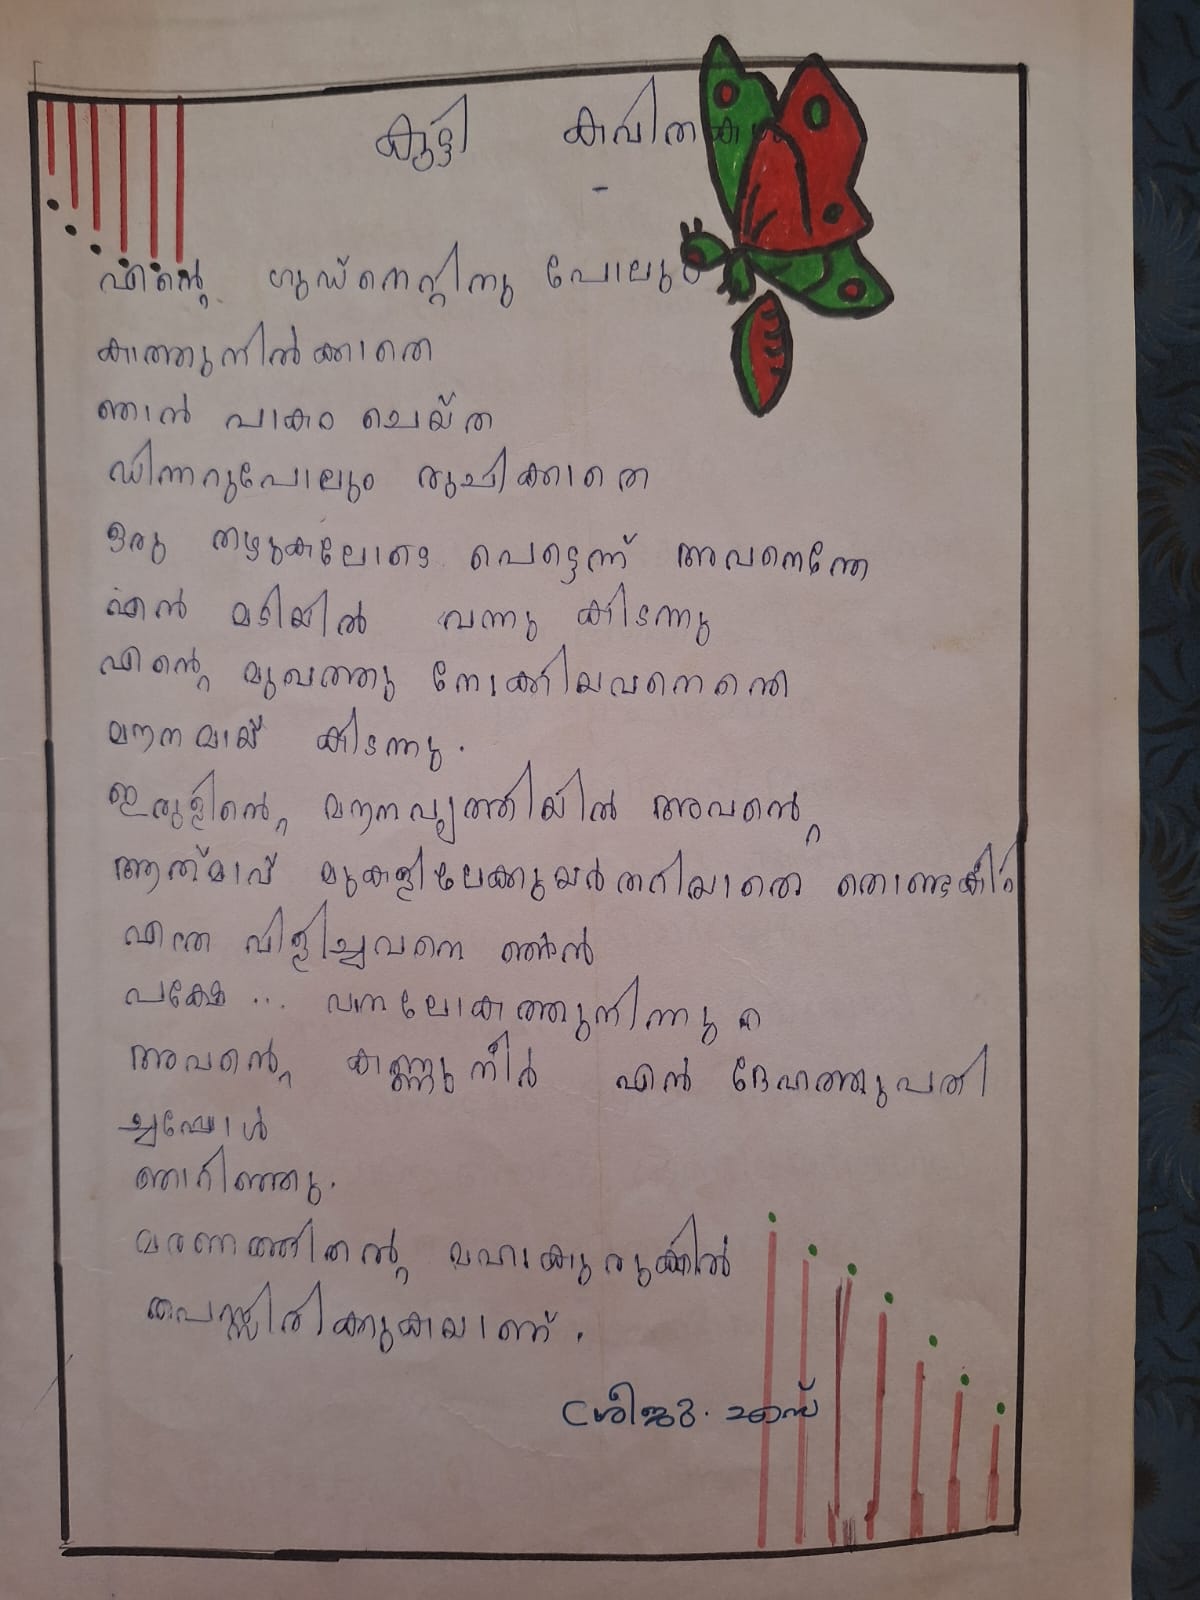 കുട്ടി കവിതകൾ
എന്റെ ഗുഡ്നെറ്റിനു പോലും
കാത്തുനിൽക്കാതെ
ഞാൻ പാകം ചെയ്ത
ഡിന്നറുപോലും രുചിക്കാതെ
ഒരു തഴുകലോടെ പെട്ടെന്ന് അവനെന്തേ
എൻ മടിയിൽ വന്നു കിടന്നു
എന്റെ മുഖത്തു നോക്കിയവനെന്തെ
മൗനമായ് കിടന്നു.
ഇരുളിന്റെ അവന്റെ
ആത്മാവ് മുകളിലേക്കുയർന്നതറിയാതെ തൊണ്ടകീറി
എത്ര വിളിച്ചവനെ ഞാൻ
പക്ഷേ ... ലോകത്തുനിന്നും
അവന്റെ കണ്ണുനീർ എൻ ദേഹത്തുപതി
ച്ചപ്പോൾ
ഞാനറിഞ്ഞു.
മരണത്തിന്റെ
(ഷീജ. എസ്